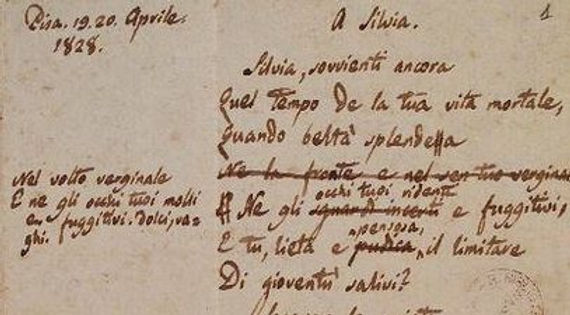 Pisa. 19. 20. Aprile.
1828.
A Silvia.
1
Silvia, sovvienti ancora
Quel tempo de la tua vita mortale,
Quando beltà splendea
Ne la fronte e nel sen tuo vergina
occhi tuoi ridenti
Ne gli sguardi incerti e fuggitivi,
pensosa,
E tu, lieta e pudica, il limitare
Di gioventù salivi?
Nel volto verginale
E ne gli occhi tuoi molli
e fuggitivi. dolci, va=
ghi.